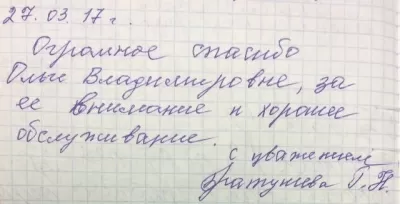 27.03.17 г.
Огромное спасибо
Ольге Владимировне, за
ее внимание и хорошее
обслуживание.
с уважением
Братушева Г. Н.